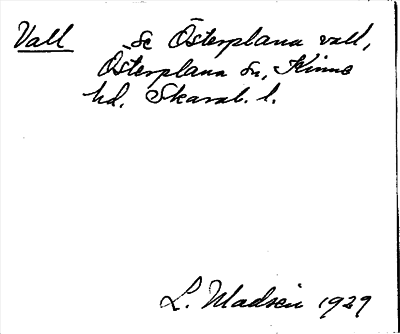 Vall Se Österplana vall,
Österplana sn, Kinne
hd, Skarab. l.
L. Madsén 1929